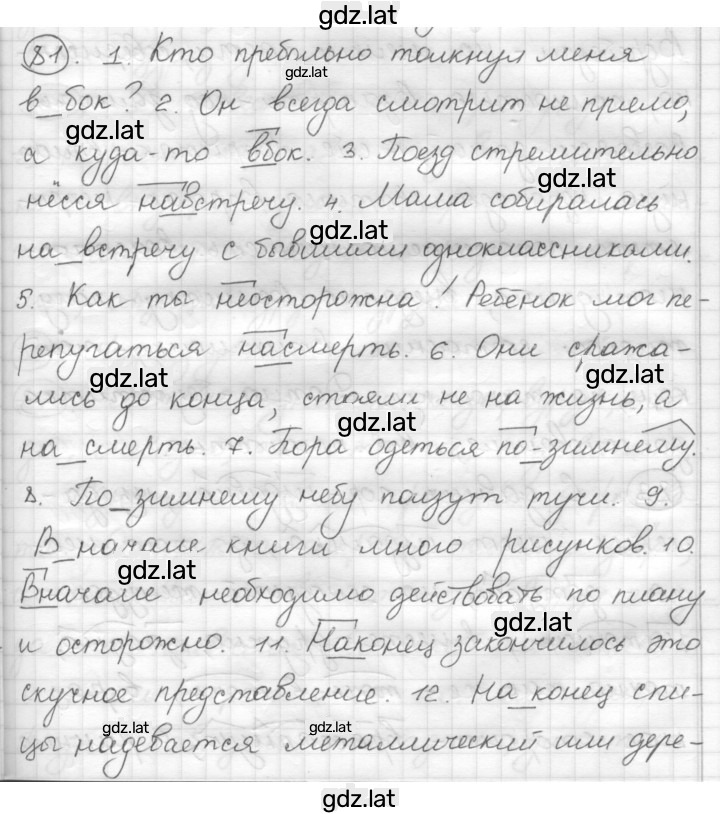 gdz.lat
81. 1. Кто пребольно толкнул меня
gdz.lat
в_бок? 2. Он всегда смотрит не прямо,
gdz.lat
а куда-то вбок. 3. Поезд стремительно
gdz.lat
нёсся навстречу. 4. Маша собиралась
gdz.lat
на_встречу с бывшими одноклассниками.
5. Как ты неосторожна! Ребёнок мог пе-
репугаться насмерть. 6. Они сража-
gdz.lat gdz.lat
лись до конца, стояли не на жизнь, а
gdz.lat
на_смерть. 7. Пора одеться по-зимнему.
8. По_зимнему небу ползут тучи. 9.
В_начале книги много рисунков. 10.
gdz.lat
Вначале необходимо действовать по плану
gdz.lat
и осторожно. 11. Наконец закончилось это
скучное представление. 12. На_конец спи-
gdz.lat gdz.lat
цы надевается металлический или дере-
gdz.lat